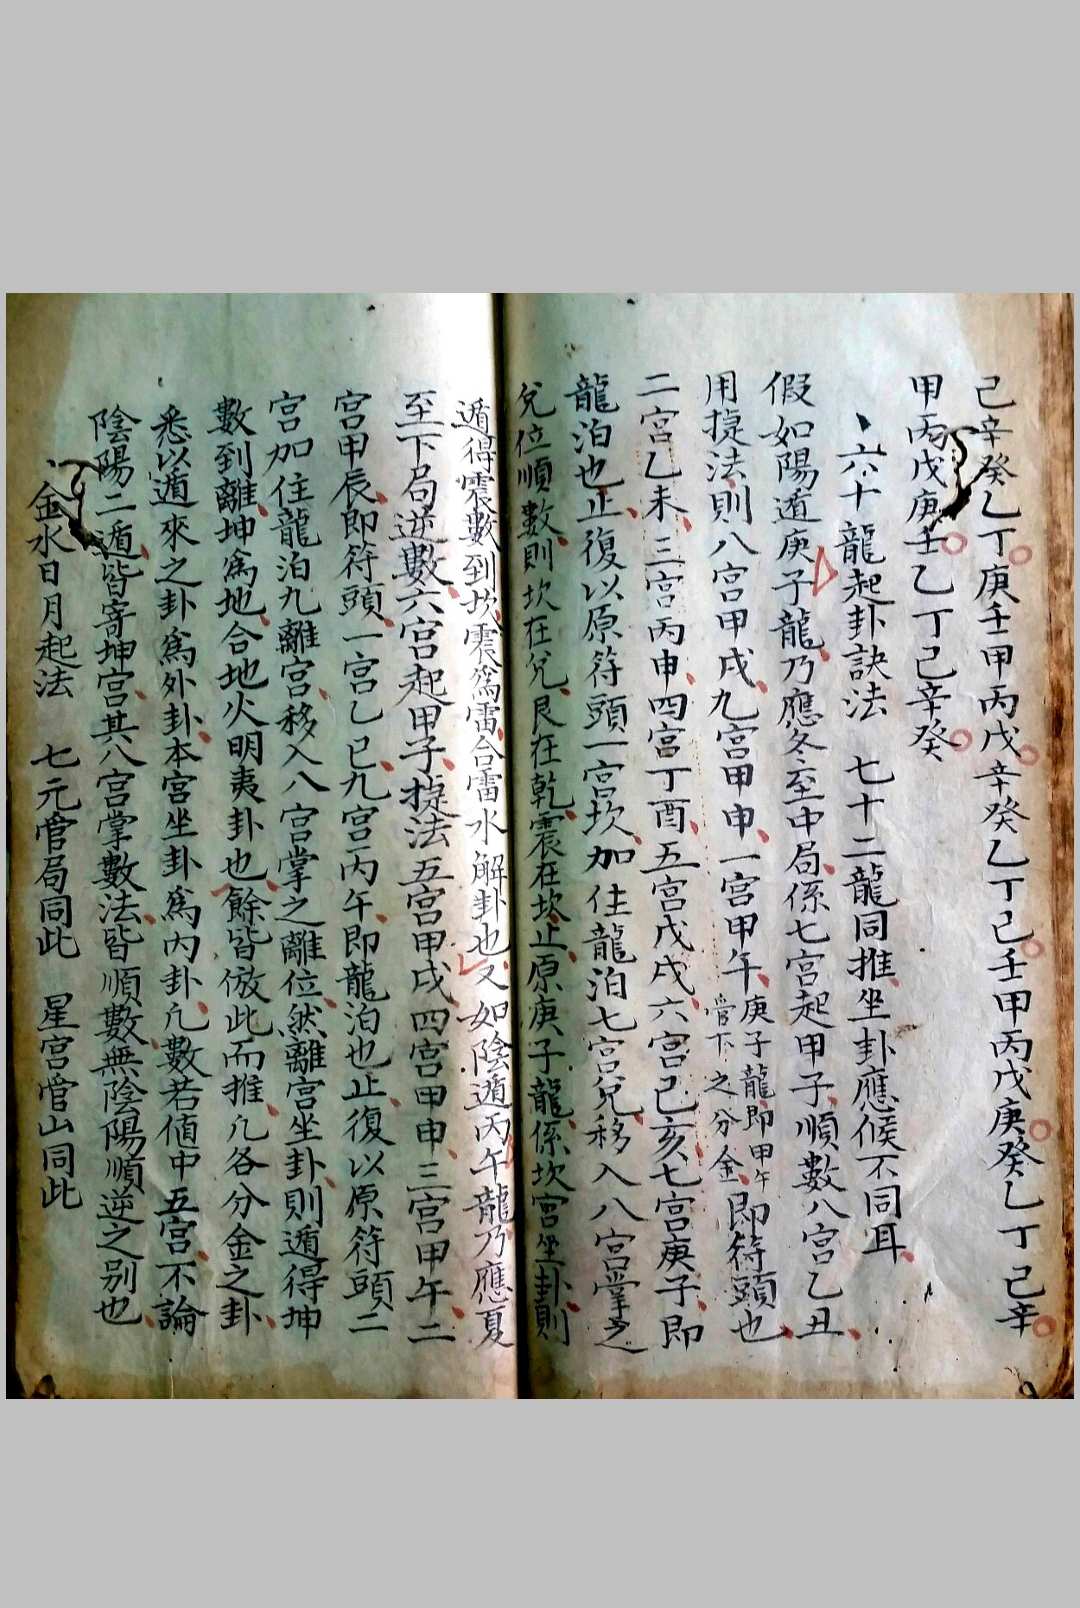 己辛癸乙丁庚壬甲丙戊辛癸乙丁己壬甲丙戊庚癸乙丁己辛
甲丙戊庚壬乙丁己辛癸
六十龍起卦訣法 七十二龍同推坐卦應候不同耳
假如陽遁庚子龍乃應冬至中局係七宮起甲子順數八宮乙丑
用㨗法則八宮甲戌九宮甲申一宮甲午庚子龍即甲午管下之分金即符頭也
二宮乙未三宮丙申四宮丁酉五宮戊戌六宮己亥七宮庚子即
龍泊也止復以原符頭一宮坎加住龍泊七宮兌移入八宮掌之
兌位順數則坎在兌艮在乾震在坎止原庚子龍係坎宮坐卦則
遁得震數到坎震為雷合雷水解卦也又如陰遁丙午龍乃應夏
至下局逆數六宮起甲子㨗法五宮甲戌四宮甲申三宮甲午二
宮甲辰即符頭一宮乙巳九宮丙午即龍泊也止復以原符頭二
宮加住龍泊九離宮移入八宮掌之離位然離宮坐卦則遁得坤
數到離坤為地合地火明夷卦也餘皆倣此而推凢各分金之卦
悉以遁來之卦為外卦本宮坐卦為內卦凢數若值中五宮不論
陰陽二遁皆寄坤宮其八宮掌數法皆順數無陰陽順逆之别也
金水日月起法 七元管局同此 星宮管山同此